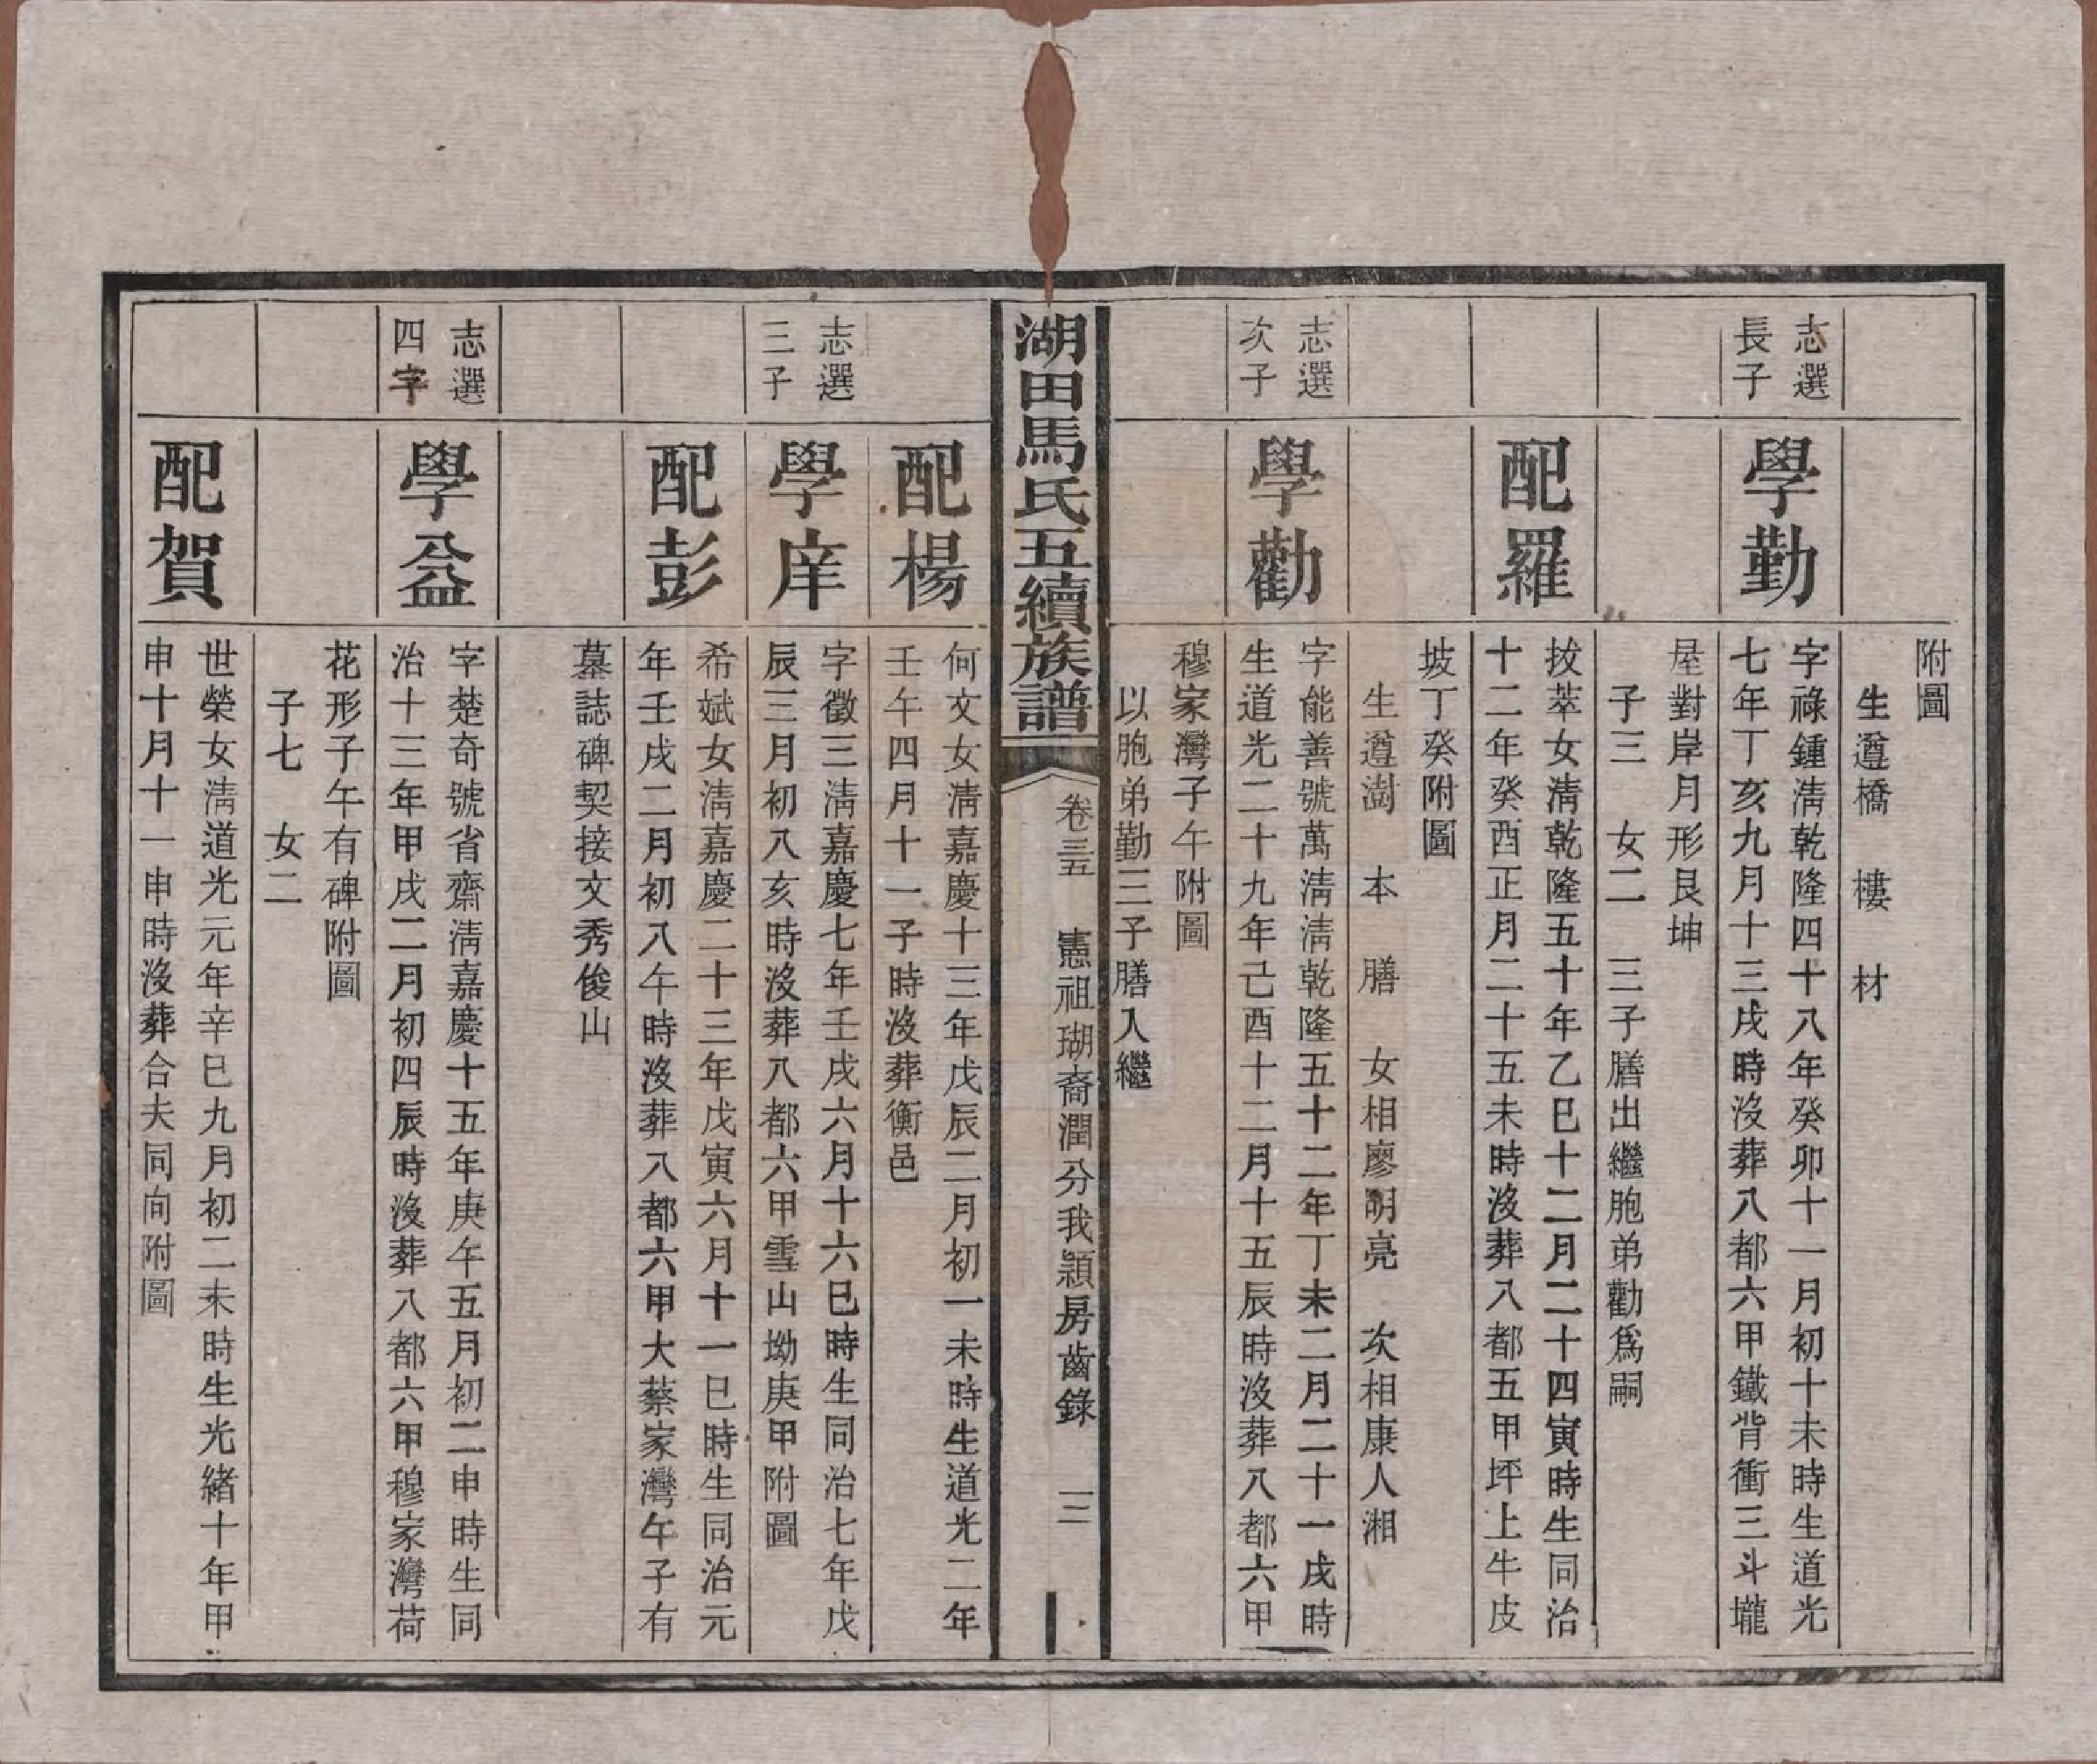 附圖
生遵橋　樓　材
志選
長子
學勤
字祿鍾淸乾隆四十八年癸卯十一月初十未時生道光
七年丁亥九月十三戌時沒葬八都六甲鐵背衝三斗壠
屋對岸月形艮坤
子三　女二　三子膳出繼胞弟勸爲嗣
配羅
拔萃女淸乾隆五十年乙巳十二月二十四寅時生同治
十二年癸酉正月二十五未時沒葬八都五甲坪上牛皮
坡丁癸附圖
生遵澍　本　膳　女相廖明亮　次相康人湘
志選
次子
學勸
字能善號萬淸淸乾隆五十二年丁未二月二十一戌時
生道光二十九年己酉十二月十五辰時沒葬八都六甲
穆家灣子午附圖
以胞弟勤三子膳入繼
湖田馬氏五續族譜
卷三五　憲祖瑚裔潤分我穎房齒錄　三
配楊
何文女淸嘉慶十三年戊辰二月初一未時生道光二年
壬午四月十一子時沒葬衡邑
志選
三子
學庠
字徵三淸嘉慶七年壬戌六月十六巳時生同治七年戊
辰三月初八亥時沒葬八都六甲雪山坳庚甲附圖
配彭
希斌女淸嘉慶二十三年戊寅六月十一巳時生同治元
年壬戌二月初八午時沒葬八都六甲大蔡家灣午子有
墓誌碑契接文秀俊山
志選
四字
學益
字楚奇號省齋淸嘉慶十五年庚午五月初二申時生同
治十三年甲戌二月初四辰時沒葬八都六甲穆家灣荷
花形子午有碑附圖
子七　女二
配賀
世榮女淸道光元年辛巳九月初二未時生光緒十年甲
申十月十一申時沒葬合夫同向附圖